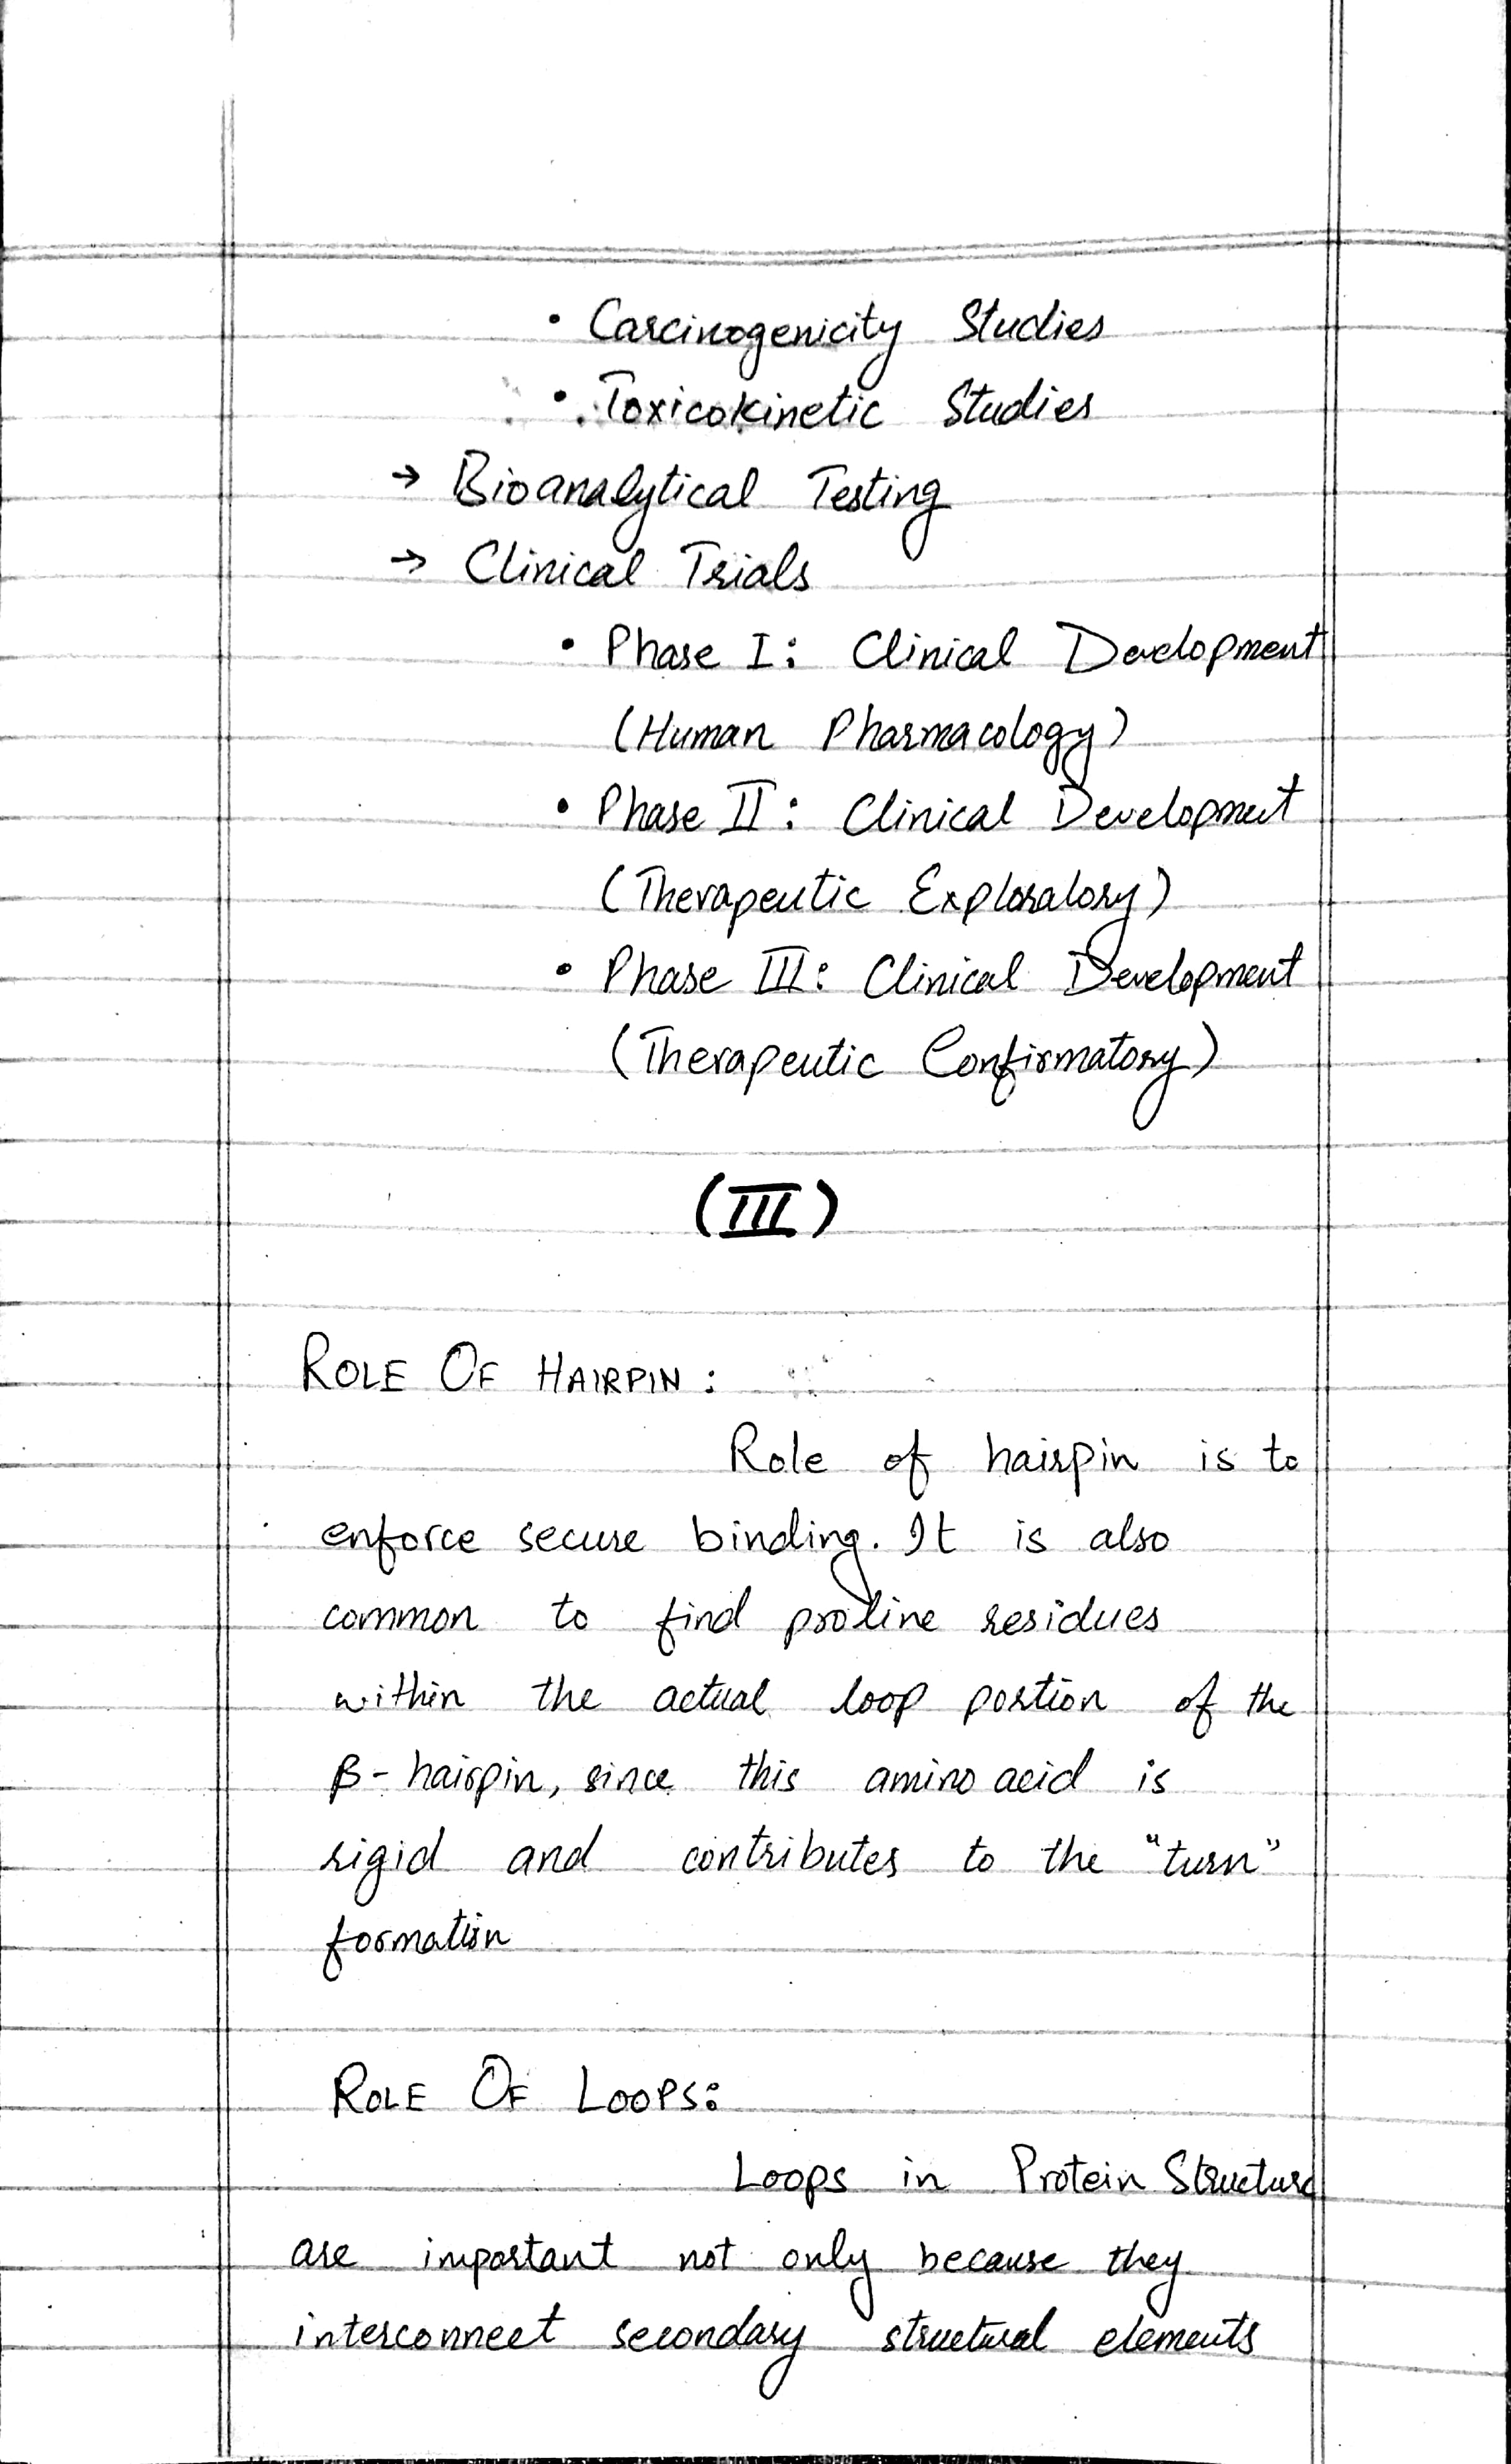 • Carcinogenicity Studies
• Toxicokinetic Studies
→ Bioanalytical Testing
→ Clinical Trials
• Phase I: Clinical Development
(Human Pharmacology)
• Phase II: Clinical Development
(Therapeutic Exploratory)
• Phase III: Clinical Development
(Therapeutic Confirmatory)
(III)
ROLE OF HAIRPIN:
Role of hairpin is to
enforce secure binding. It is also
common to find proline residues
within the actual loop portion of the
β-hairpin, since this amino acid is
rigid and contributes to the "turn"
formation
ROLE OF LOOPS:
Loops in Protein Structure
are important not only because they
interconnect secondary structural elements